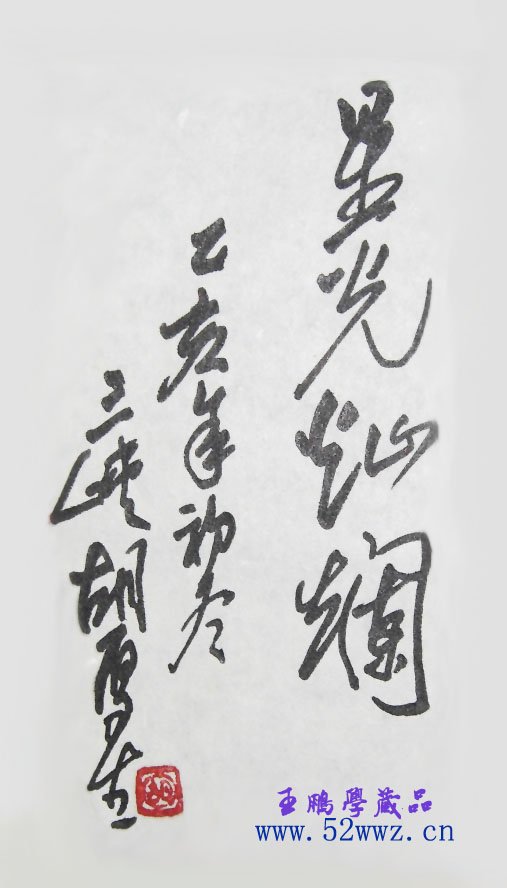 星光灿爛
乙亥年初冬
三峡胡
王鵬學藏品
www.52wwz.cn